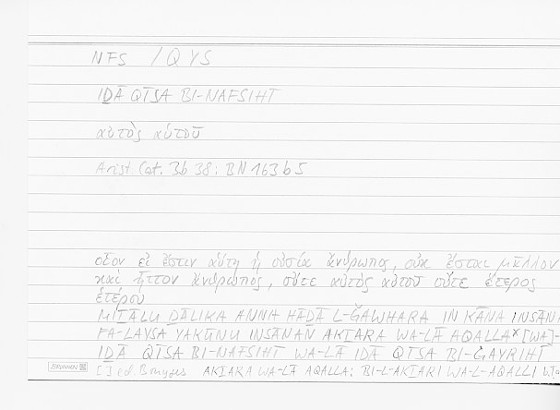 NFS / QYS
IḎĀ QĪSA BI-NAFSIHĪ
αὐτὸς αὑτοῦ
Arist. Cat. 3b 38; BN 163b5
οἷον εἰ ἔστιν αὕτη ἡ οὐσία ἄνθρωπος, οὐκ ἔσται μᾶλλον
καὶ ἧττον ἄνθρωπος, οὔτε αὐτὸς αὑτοῦ οὔτε ἕτερος
ἑτέρου
MIṮĀLU ḎĀLIKA ANNA HĀḎĀ L-ǦAWHARA IN KĀNA INSĀNA
FA-LAYSA YAKŪNU INSĀNAN AKṮARA WA-LĀ AQALLA* [WA]-
IḎĀ QĪSA BI-NAFSIHĪ WA-LĀ IḎĀ QĪSA BI-ĠAYRIHĪ
BRUNNEN
ed. AKṮARA WA-LĀ AQALLA: BI-L-AKṮARI WA-L-AQALLI